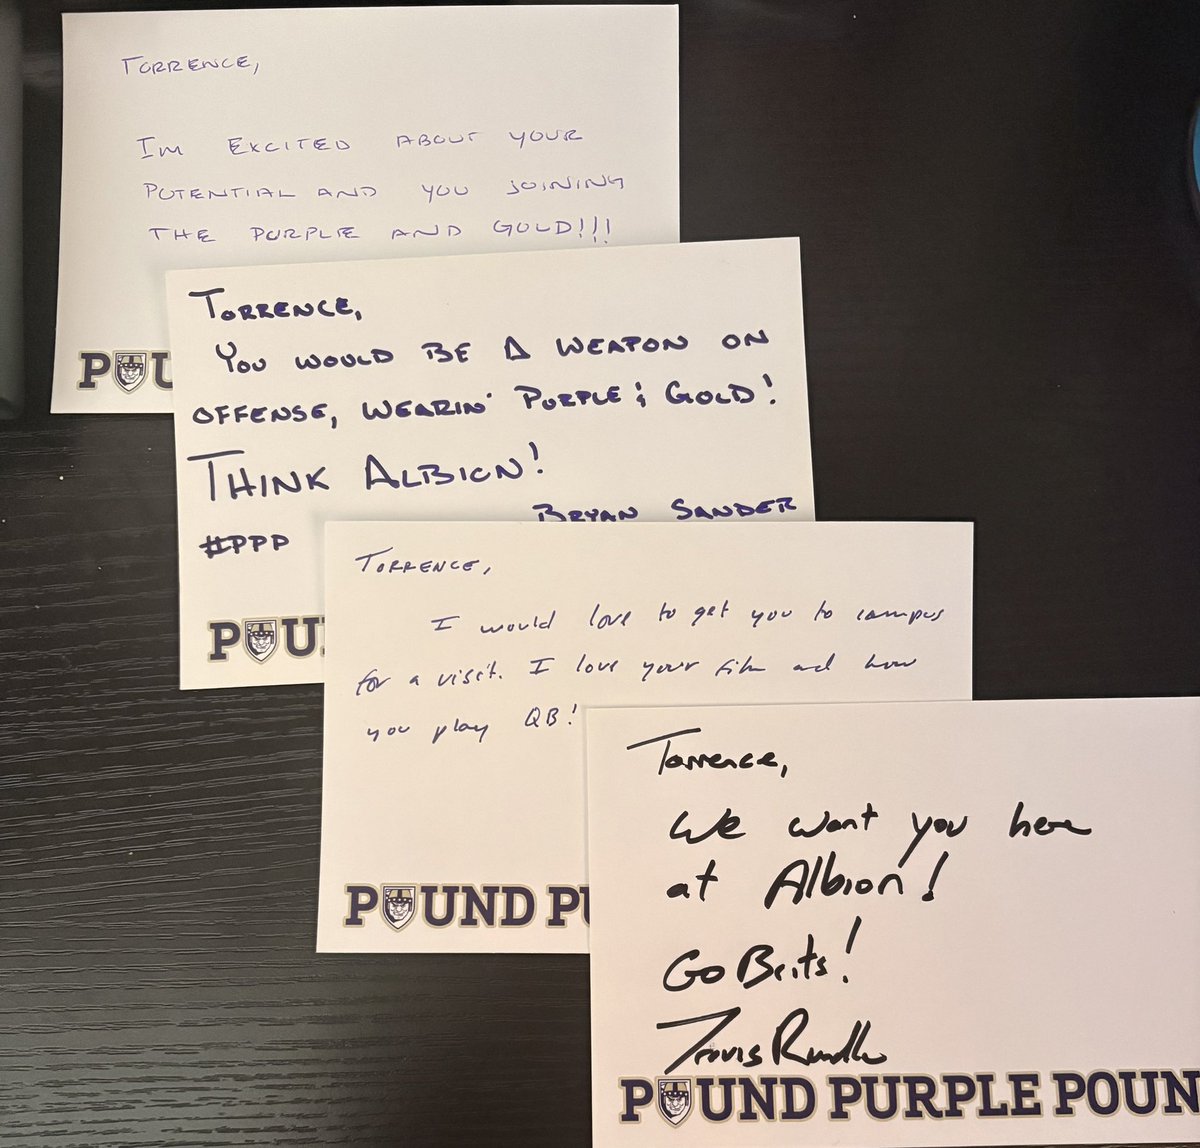 TORRENCE,
IM EXCITED ABOUT YOUR
POTENTIAL AND YOU JOINING
THE PURPLE AND GOLD!!!
POU
TORRENCE,
YOU WOULD BE A WEAPON ON
OFFENSE, WEARIN' PURPLE & GOLD!
THINK ALBION!
BRYAN SANDER
#PPP
POU
TORRENCE,
I would love to get you to campus
for a visit. I love your film and how
you play QB!
POUND PU
Torrence,
We want you here
at Albion!
Go Brits!
Travis Rundle
POUND PURPLE POUN